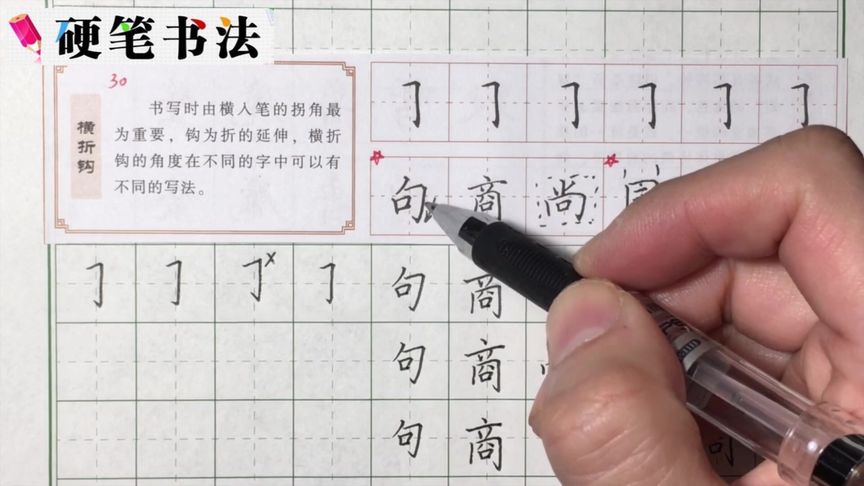 硬笔书法
30
横折钩
书写时由横入笔的拐角最
为重要，钩为折的延伸，横折
钩的角度在不同的字中可以有
不同的写法。
㇆ ㇆ ㇆ ㇆ ㇆ ㇆
句 商 尚
㇆ ㇆ ㇆ x ㇆ 句 商
句 商
句 商 句